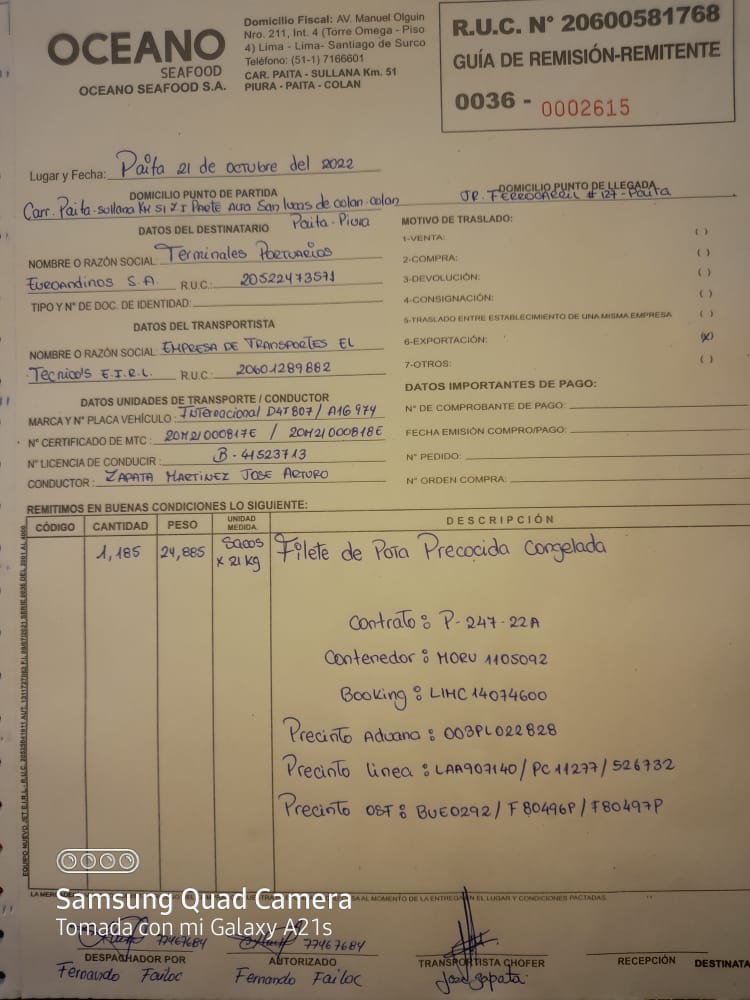 OCEANO
SEAFOOD
OCEANO SEAFOOD S.A.
Domicilio Fiscal: AV. Manuel Olguin
Nro. 211, Int. 4 (Torre Omega - Piso
4) Lima - Lima- Santiago de Surco
Teléfono: (51-1) 7166601
CAR. PAITA - SULLANA Km. 51
PIURA - PAITA - COLAN
R.U.C. N° 20600581768
GUÍA DE REMISIÓN-REMITENTE
0036 - 0002615
Lugar y Fecha: Paita 21 de octubre del 2022
DOMICILIO PUNTO DE PARTIDA
Carr. Paita-sullana KM 51 Z I Parte Alta San lucas de colan-colan
Paita-Piura
DOMICILIO PUNTO DE LLEGADA
JR. FERROCARRIL # 127-Paita
DATOS DEL DESTINATARIO
NOMBRE O RAZÓN SOCIAL: Terminales Portuarios
Euroandinos S.A. R.U.C.: 20522473571
TIPO Y N° DE DOC. DE IDENTIDAD:
DATOS DEL TRANSPORTISTA
NOMBRE O RAZÓN SOCIAL: EMPRESA DE TRANSPORTES EL
Tecnico's E.I.R.L. R.U.C.: 20601289882
DATOS UNIDADES DE TRANSPORTE / CONDUCTOR
MARCA Y N° PLACA VEHÍCULO: Internacional D4T807 / A16 974
N° CERTIFICADO DE MTC: 20M21000817E / 20M21000818E
N° LICENCIA DE CONDUCIR: B-41523713
CONDUCTOR: ZAPATA MARTINEZ JOSE ARTURO
MOTIVO DE TRASLADO:
1-VENTA: ( )
2-COMPRA: ( )
3-DEVOLUCIÓN: ( )
4-CONSIGNACIÓN: ( )
5-TRASLADO ENTRE ESTABLECIMIENTO DE UNA MISMA EMPRESA ( )
6-EXPORTACIÓN: (X)
7-OTROS: ( )
DATOS IMPORTANTES DE PAGO:
N° DE COMPROBANTE DE PAGO:
FECHA EMISIÓN COMPRO/PAGO:
N° PEDIDO:
N° ORDEN COMPRA:
REMITIMOS EN BUENAS CONDICIONES LO SIGUIENTE:
CÓDIGO CANTIDAD PESO UNIDAD MEDIDA DESCRIPCIÓN
1,185 24,885 Sacos x 21 kg Filete de Pota Precocida Congelada
Contrato: P-247-22A
Contenedor: MORU 1105092
Booking: LIMC14074600
Precinto Aduana: 003PL022828
Precinto linea: LAA907140/PC11277/526732
Precinto OST: BUE0292/F80496P/F80497P
SA AL MOMENTO DE LA ENTREGA EN EL LUGAR Y CONDICIONES PACTADAS.
Samsung Quad Camera
Tomada con mi Galaxy A21s
77467684 77467684
DESPACHADOR POR AUTORIZADO TRANSPORTISTA CHOFER RECEPCIÓN DESTINATA
Fernando Failoc Fernando Failoc Jose Zapata